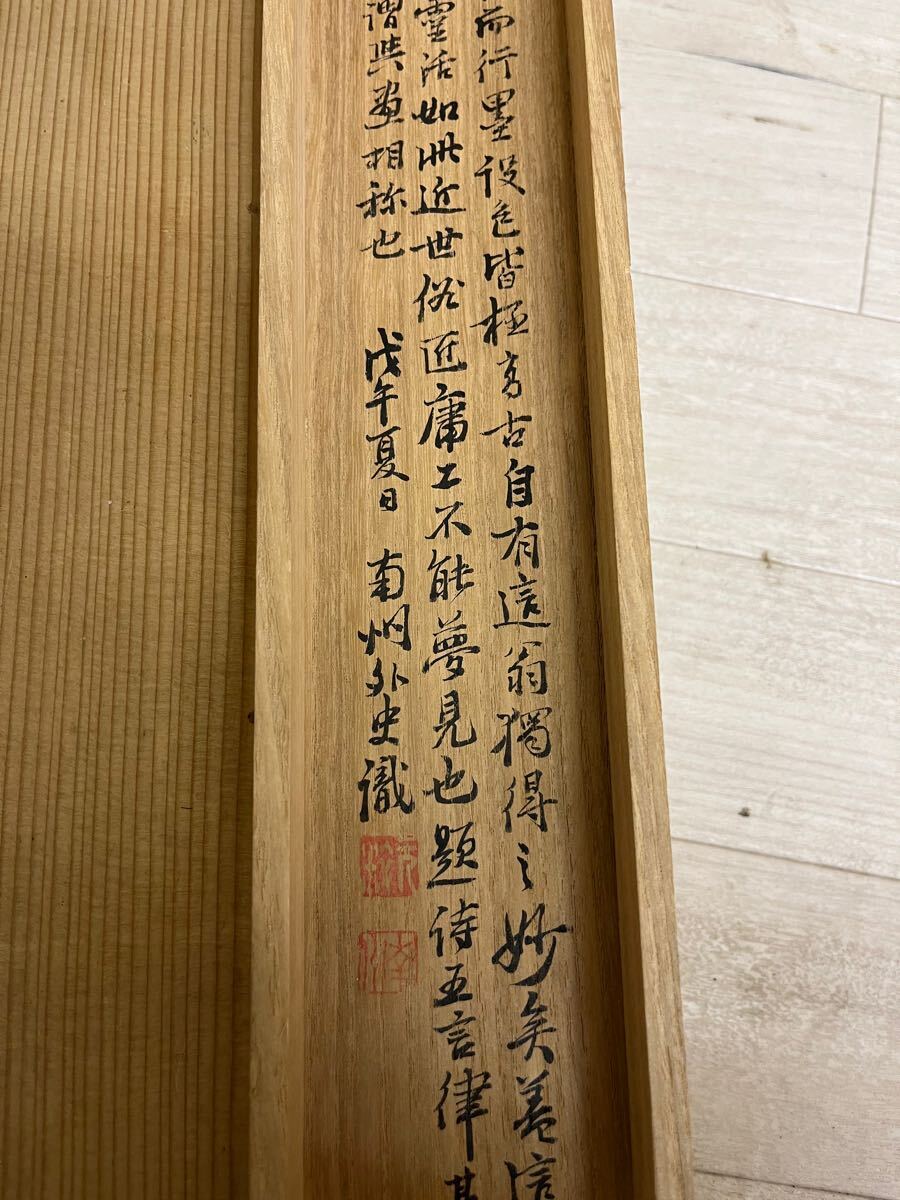 而行墨設色皆極高古自有這翁獨得之妙矣蓋
靈活如此近世俗匠庸工不能夢見也題詩五言律其
謂與畫相称也 戊午夏日 南州外史識